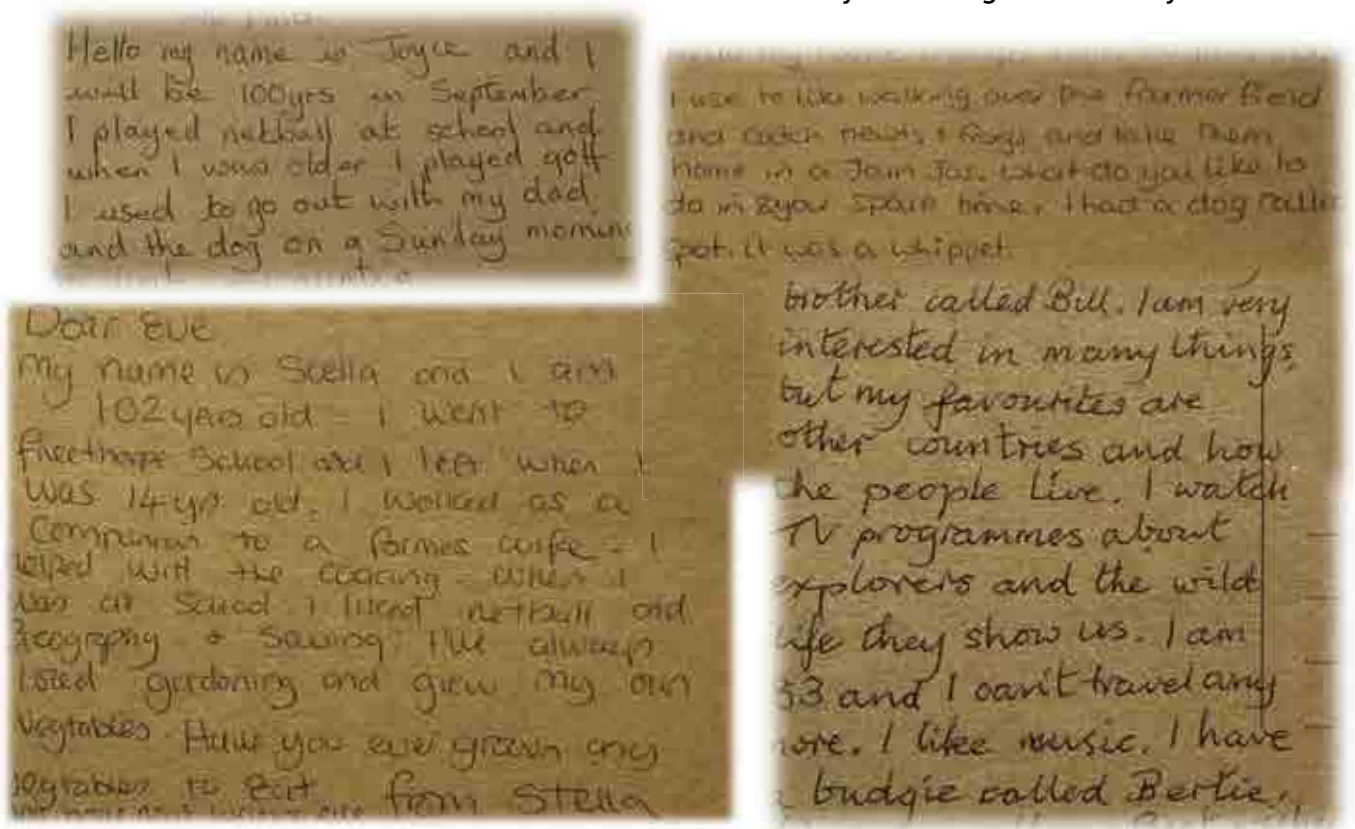 Hello my name is Joyce and I
will be 100yrs in September
I played netball at school and
when I was older I played golf
I used to go out with my dad
and the dog on a Sunday morning
I use to like walking over the farmer field
and catch newts, & frogs and take them
home in a Jam Jar. what do you like to
do in your spair time. I had a dog called
Spot. it was a whippet.
Dear Eve
My name is Stella and I am
102 years old - I went to
Freethorpe School and I left when I
was 14yrs old. I worked as a
Companion to a farmes wife - I
helped with the cooking - when I
was at School I liked netball and
Geography & Sewing I've always
loved gardoning and grew my own
Vegtables. Have you ever grown any
vegtables to eat from Stella
brother called Bill. I am very
interested in many things,
but my favourites are
other countries and how
the people live. I watch
TV programmes about
explorers and the wild
life they show us. I am
53 and I can't travel any
more. I like music. I have
budgie called Bertie.